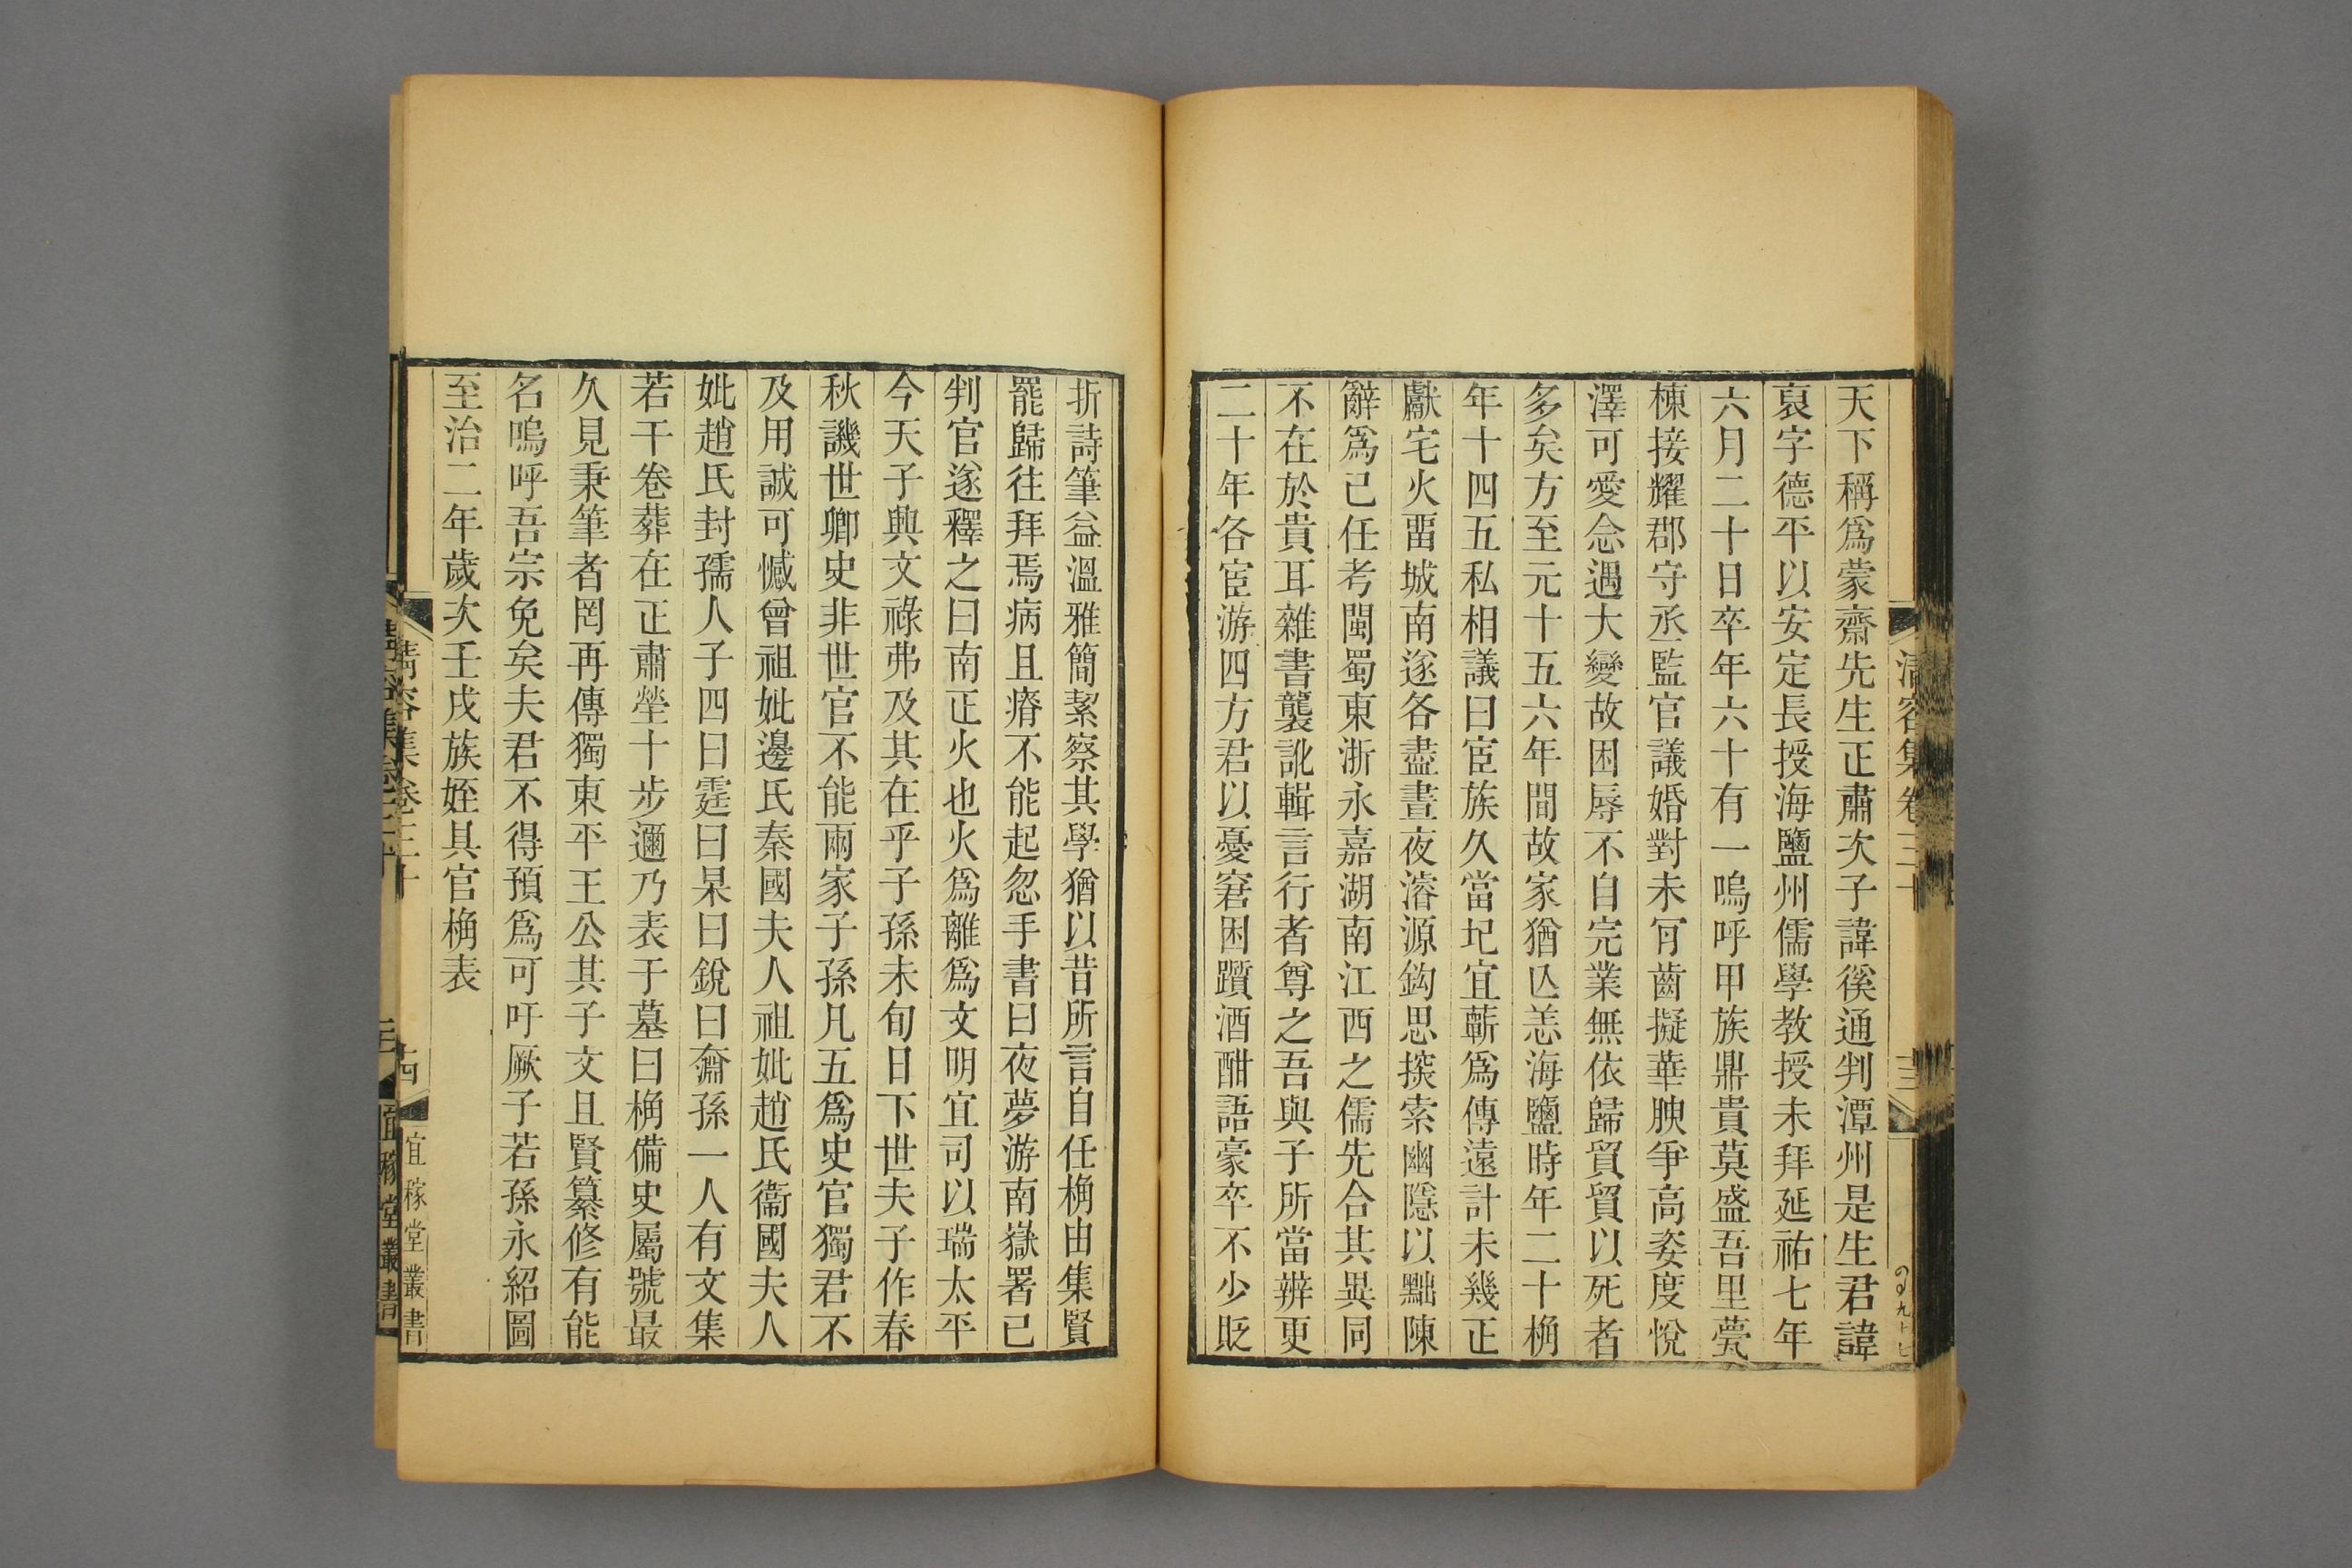 清容集卷三十
三
天下稱爲蒙齋先生正肅次子諱徯通判潭州是生君諱
裒字德平以安定長授海鹽州儒學教授未拜延祐七年
六月二十日卒年六十有一嗚呼甲族鼎貴莫盛吾里甍
棟接耀郡守丞監官議婚對未冠齒擬華腴爭高姿度悅
澤可愛念遇大變故困辱不自完業無依歸貿貿以死者
多矣方至元十五六年間故家猶亾恙海鹽時年二十桷
年十四五私相議曰宦族久當圮宜蘄爲傳遠計未幾正
獻宅火畱城南遂各盡晝夜濬源鈎思探索幽隱以黜陳
辭爲己任考閩蜀東浙永嘉湖南江西之儒先合其異同
不在於貴耳雜書襲訛輯言行者尊之吾與子所當辨更
二十年各宦游四方君以憂窘困躓酒酣語豪卒不少貶
折詩筆益溫雅簡絜察其學猶以昔所言自任桷由集賢
罷歸往拜焉病且瘠不能起忽手書曰夜夢游南嶽署己
判官遂釋之曰南正火也火爲離爲文明宜司以瑞太平
今天子興文祿弗及其在乎子孫未旬日下世夫子作春
秋譏世卿史非世官不能兩家子孫凡五爲史官獨君不
及用誠可憾曾祖妣邊氏秦國夫人祖妣趙氏衞國夫人
妣趙氏封孺人子四曰霆曰杲曰銳曰奫孫一人有文集
若干卷葬在正肅塋十步邇乃表于墓曰桷備史屬號最
久見秉筆者罔再傳獨東平王公其子文且賢纂修有能
名嗚呼吾宗免矣夫君不得預爲可吁厥子若孫永紹圖
至治二年歲次壬戌族姪具官桷表
清容集卷三十
十四
宜稼堂叢書